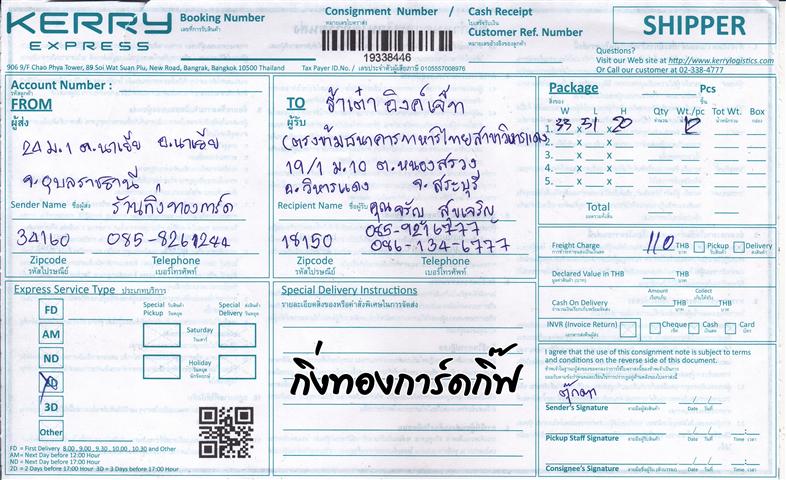 KERRY
EXPRESS
Booking Number
เลขที่การรับสินค้า
Consignment Number /
หมายเลขใบตราส่ง
19338446
Cash Receipt
ใบเสร็จรับเงิน
Customer Ref. Number
หมายเลขอ้างอิงของลูกค้า
SHIPPER
Questions?
Visit our Web site at http://www.kerrylogistics.com
Or Call our customer at 02-338-4777
906 9/F Chao Phya Tower, 89 Soi Wat Suan Plu, New Road, Bangrak, Bangkok 10500 Thailand
Tax Payer ID.No./ เลขประจำตัวผู้เสียภาษี 0105557008976
Account Number :
รหัสลูกค้า
FROM
ผู้ส่ง
24 ม.1 ต.นาเยีย อ.นาเยีย
จ.อุบลราชธานี
Sender Name ชื่อผู้ส่ง ร้านกิ่งทองการ์ด
34160 085-8261244
Zipcode Telephone
รหัสไปรษณีย์ เบอร์โทรศัพท์
TO
ผู้รับ
ร้าเต๋า อิงค์เจ็ท
(ตรงข้ามธนาคารทหารไทยสาขาวิหารแดง
19/1 ม.10 ต.หนองสรวง
อ.วิหารแดง จ.สระบุรี
Recipient Name ชื่อผู้รับ คุณจรัญ สุขเจริญ
085-9216777
18150 086-134-6777
Zipcode Telephone
รหัสไปรษณีย์ เบอร์โทรศัพท์
Package Pcs
สิ่งของ ชิ้น
W L H Qty Wt./pc Tot Wt. Box
1. 33 x 51 x 20 12
2. x x
3. x x
4. x x
5. x x
Total
Freight Charge 110 THB Pickup Delivery
Declared Value in THB THB
Amount Collect
Cash On Delivery THB THB
INVR (Invoice Return) Cheque Cash Card
เช็ค เงินสด บัตร
I agree that the use of this consignment note is subject to terms
and conditions on the reverse side of this document.
ตุ๊กตา
Sender's Signature ลายมือผู้ส่งสินค้า Date วันที่
Pickup Staff Signature Date วันที่ Time เวลา
Consignee's Signature Date วันที่ Time เวลา
Express Service Type ประเภทบริการ
FD
AM
ND
2D
3D
Other
Special Pickup
Special Delivery
Saturday
วันเสาร์
Holiday
วันหยุด
นักขัตฤกษ์
FD = First Delivery 8.00 , 9.00 , 9.30 , 10.00 , 10.30 and Other
AM = Next Day before 12:00 Hour
ND = Next Day before 17:00 Hour
2D = 2 Days before 17:00 Hour 3D = 3 Days before 17:00 Hour
Special Delivery Instructions
รายละเอียดสิ่งของหรือคำสั่งพิเศษในการจัดส่ง
กิ่งทองการ์ดกิ๊ฟ